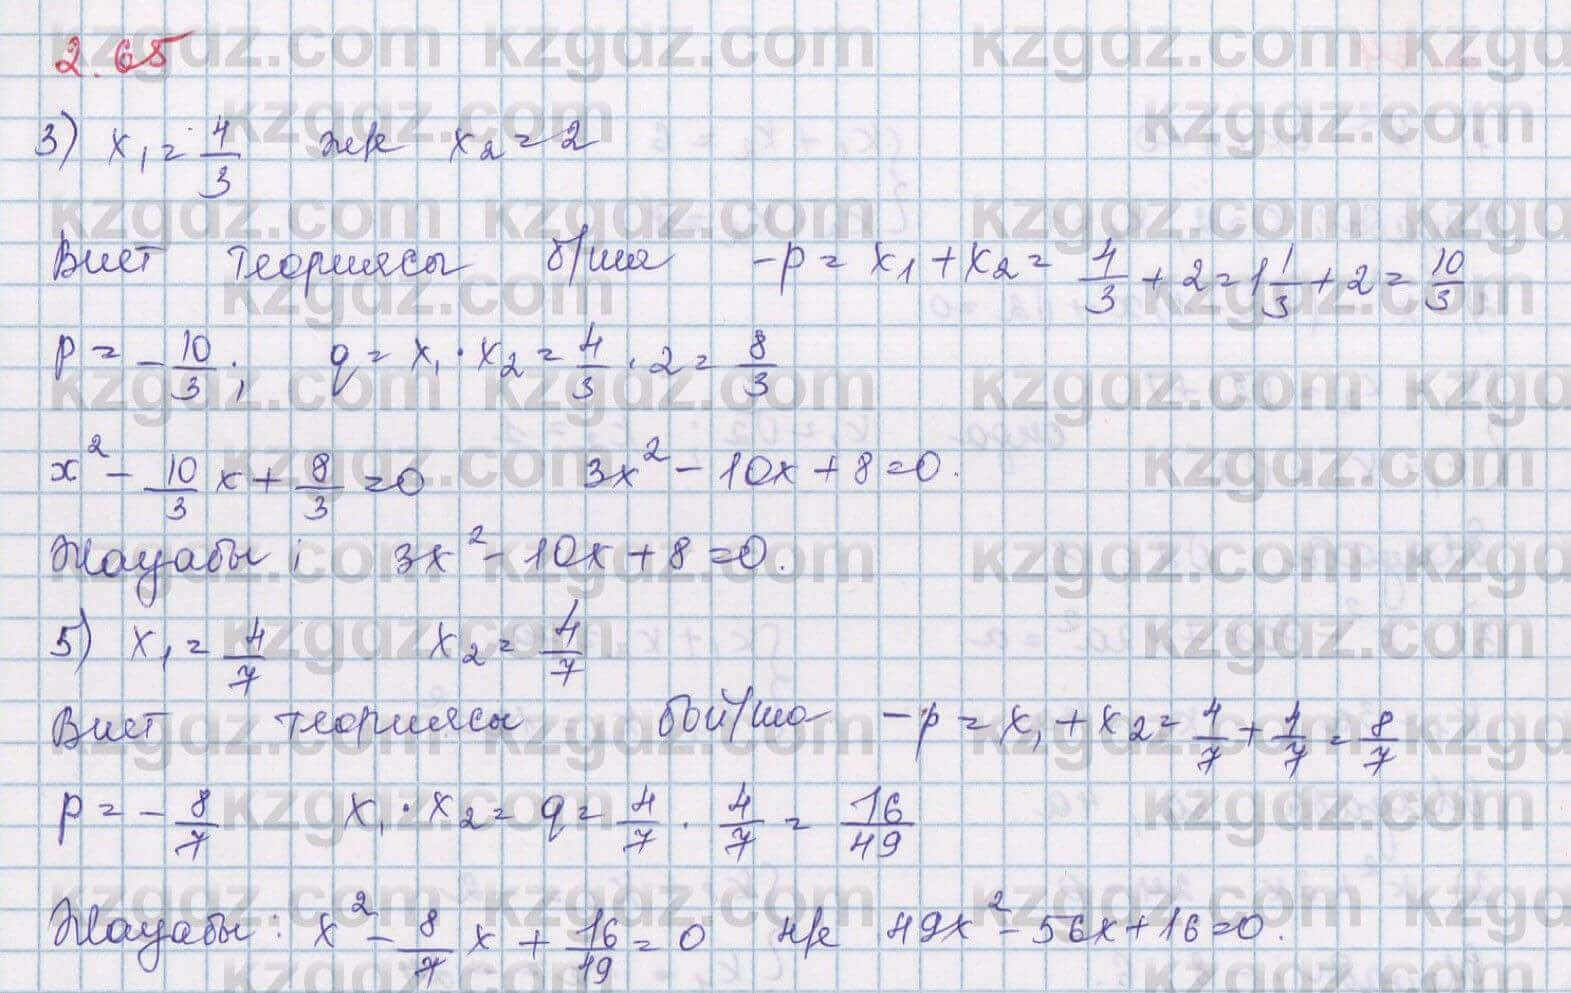 2.65
3) x₁ = 4/3 ж/е x₂ = 2
Виет теориясы б/ша -p = x₁ + x₂ = 4/3 + 2 = 1 1/3 + 2 = 10/3
p = - 10/3; q = x₁ · x₂ = 4/3 · 2 = 8/3
x² - 10/3 x + 8/3 = 0 3x² - 10x + 8 = 0.
Жауабы: 3x² - 10x + 8 = 0.
5) x₁ = 4/7 x₂ = 4/7
Виет теориясы бой/ша -p = x₁ + x₂ = 4/7 + 4/7 = 8/7
p = - 8/7 x₁ · x₂ = q = 4/7 · 4/7 = 16/49
Жауабы: x² - 8/7 x + 16/49 = 0 н/е 49x² - 56x + 16 = 0.
kzgdz.com